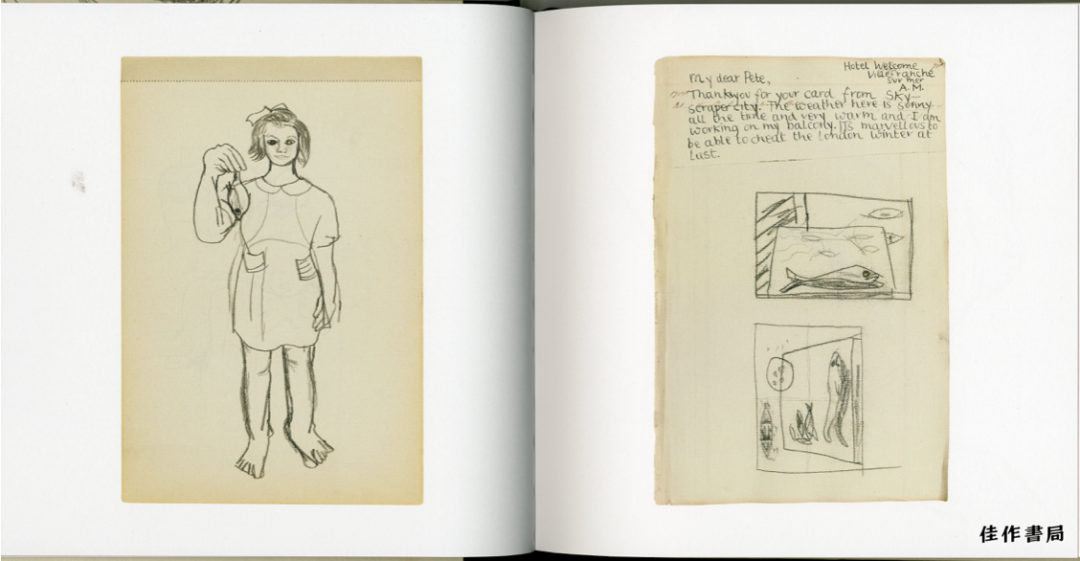 Hotel Welcome
Villefranche
sur mer
A.M.
My dear Pete,
Thankyou for your card from SKY-
scraper city. The weather here is sunny
all the time and very warm and I am
working on my balcony. Its marvellous to
be able to cheat the London winter at
last.
佳作書局